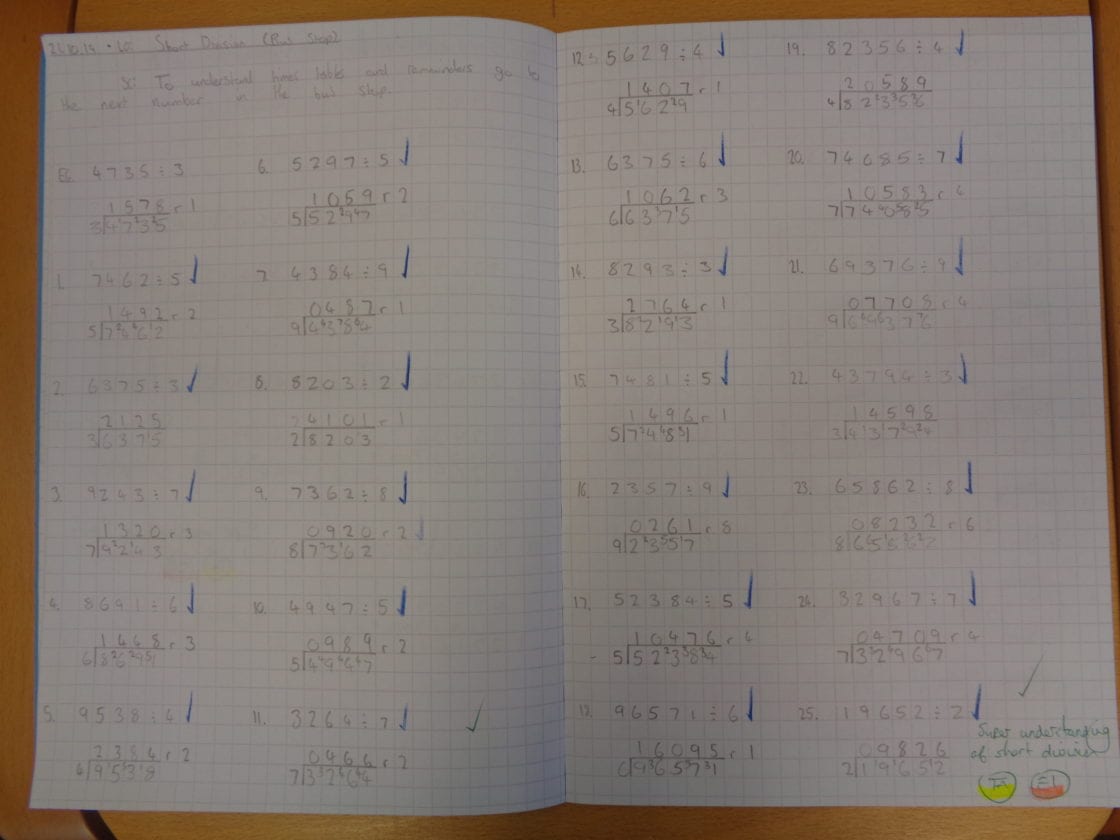 21.10.14 · LO: Short Division (Bus Stop)
SC: To understand times tables and remainders go to
the next number in the bus stop.
Eg. 4735÷3
1578 r 1
3 47²3²5
1. 7462÷5
1492 r 2
5 7²4⁴6¹2
2. 6375÷3
2125
3 637¹5
3. 9243÷7
1320 r 3
7 9²2¹43
4. 8691÷6
1448 r 3
6 8²6²9⁵1
5. 9538÷4
2384 r 2
4 9¹5³3¹8
6. 5297÷5
1059 r 2
5 52²9⁴7
7. 4384÷9
0487 r 1
9 4⁴3⁷8⁶4
8. 8203÷2
4101 r 1
2 8203
9. 7362÷8
0920 r 2
8 7⁷3¹62
10. 4947÷5
0989 r 2
5 4⁴9⁴4⁴7
11. 3264÷7
0466 r 2
7 3³2⁴6⁴4
12. 5629÷4
1407 r 1
4 5¹62²9
13. 6375÷6
1062 r 3
6 63³7¹5
14. 8293÷3
2764 r 1
3 8²2¹9¹3
15. 7481÷5
1496 r 1
5 7²4⁴8³1
16. 2357÷9
0261 r 8
9 2²3⁵5¹7
17. 52384÷5
10476 r 4
5 52²3³8³4
18. 96571÷6
16095 r 1
6 9³65⁵7³1
19. 82356÷4
20589
4 82²3³5³6
20. 74685÷7
21. 69376÷9
07708 r 4
9 6⁶9⁶37⁷6
22. 43794÷3
14598
3 4¹3¹7²9²4
23. 65862÷8
08232 r 6
8 6⁶5¹8²6²2
24. 32967÷7
04709 r 4
7 3³2⁴96⁶7
25. 19652÷2
09826
2 1¹9¹65¹2
Super understanding
of short division
TA EI